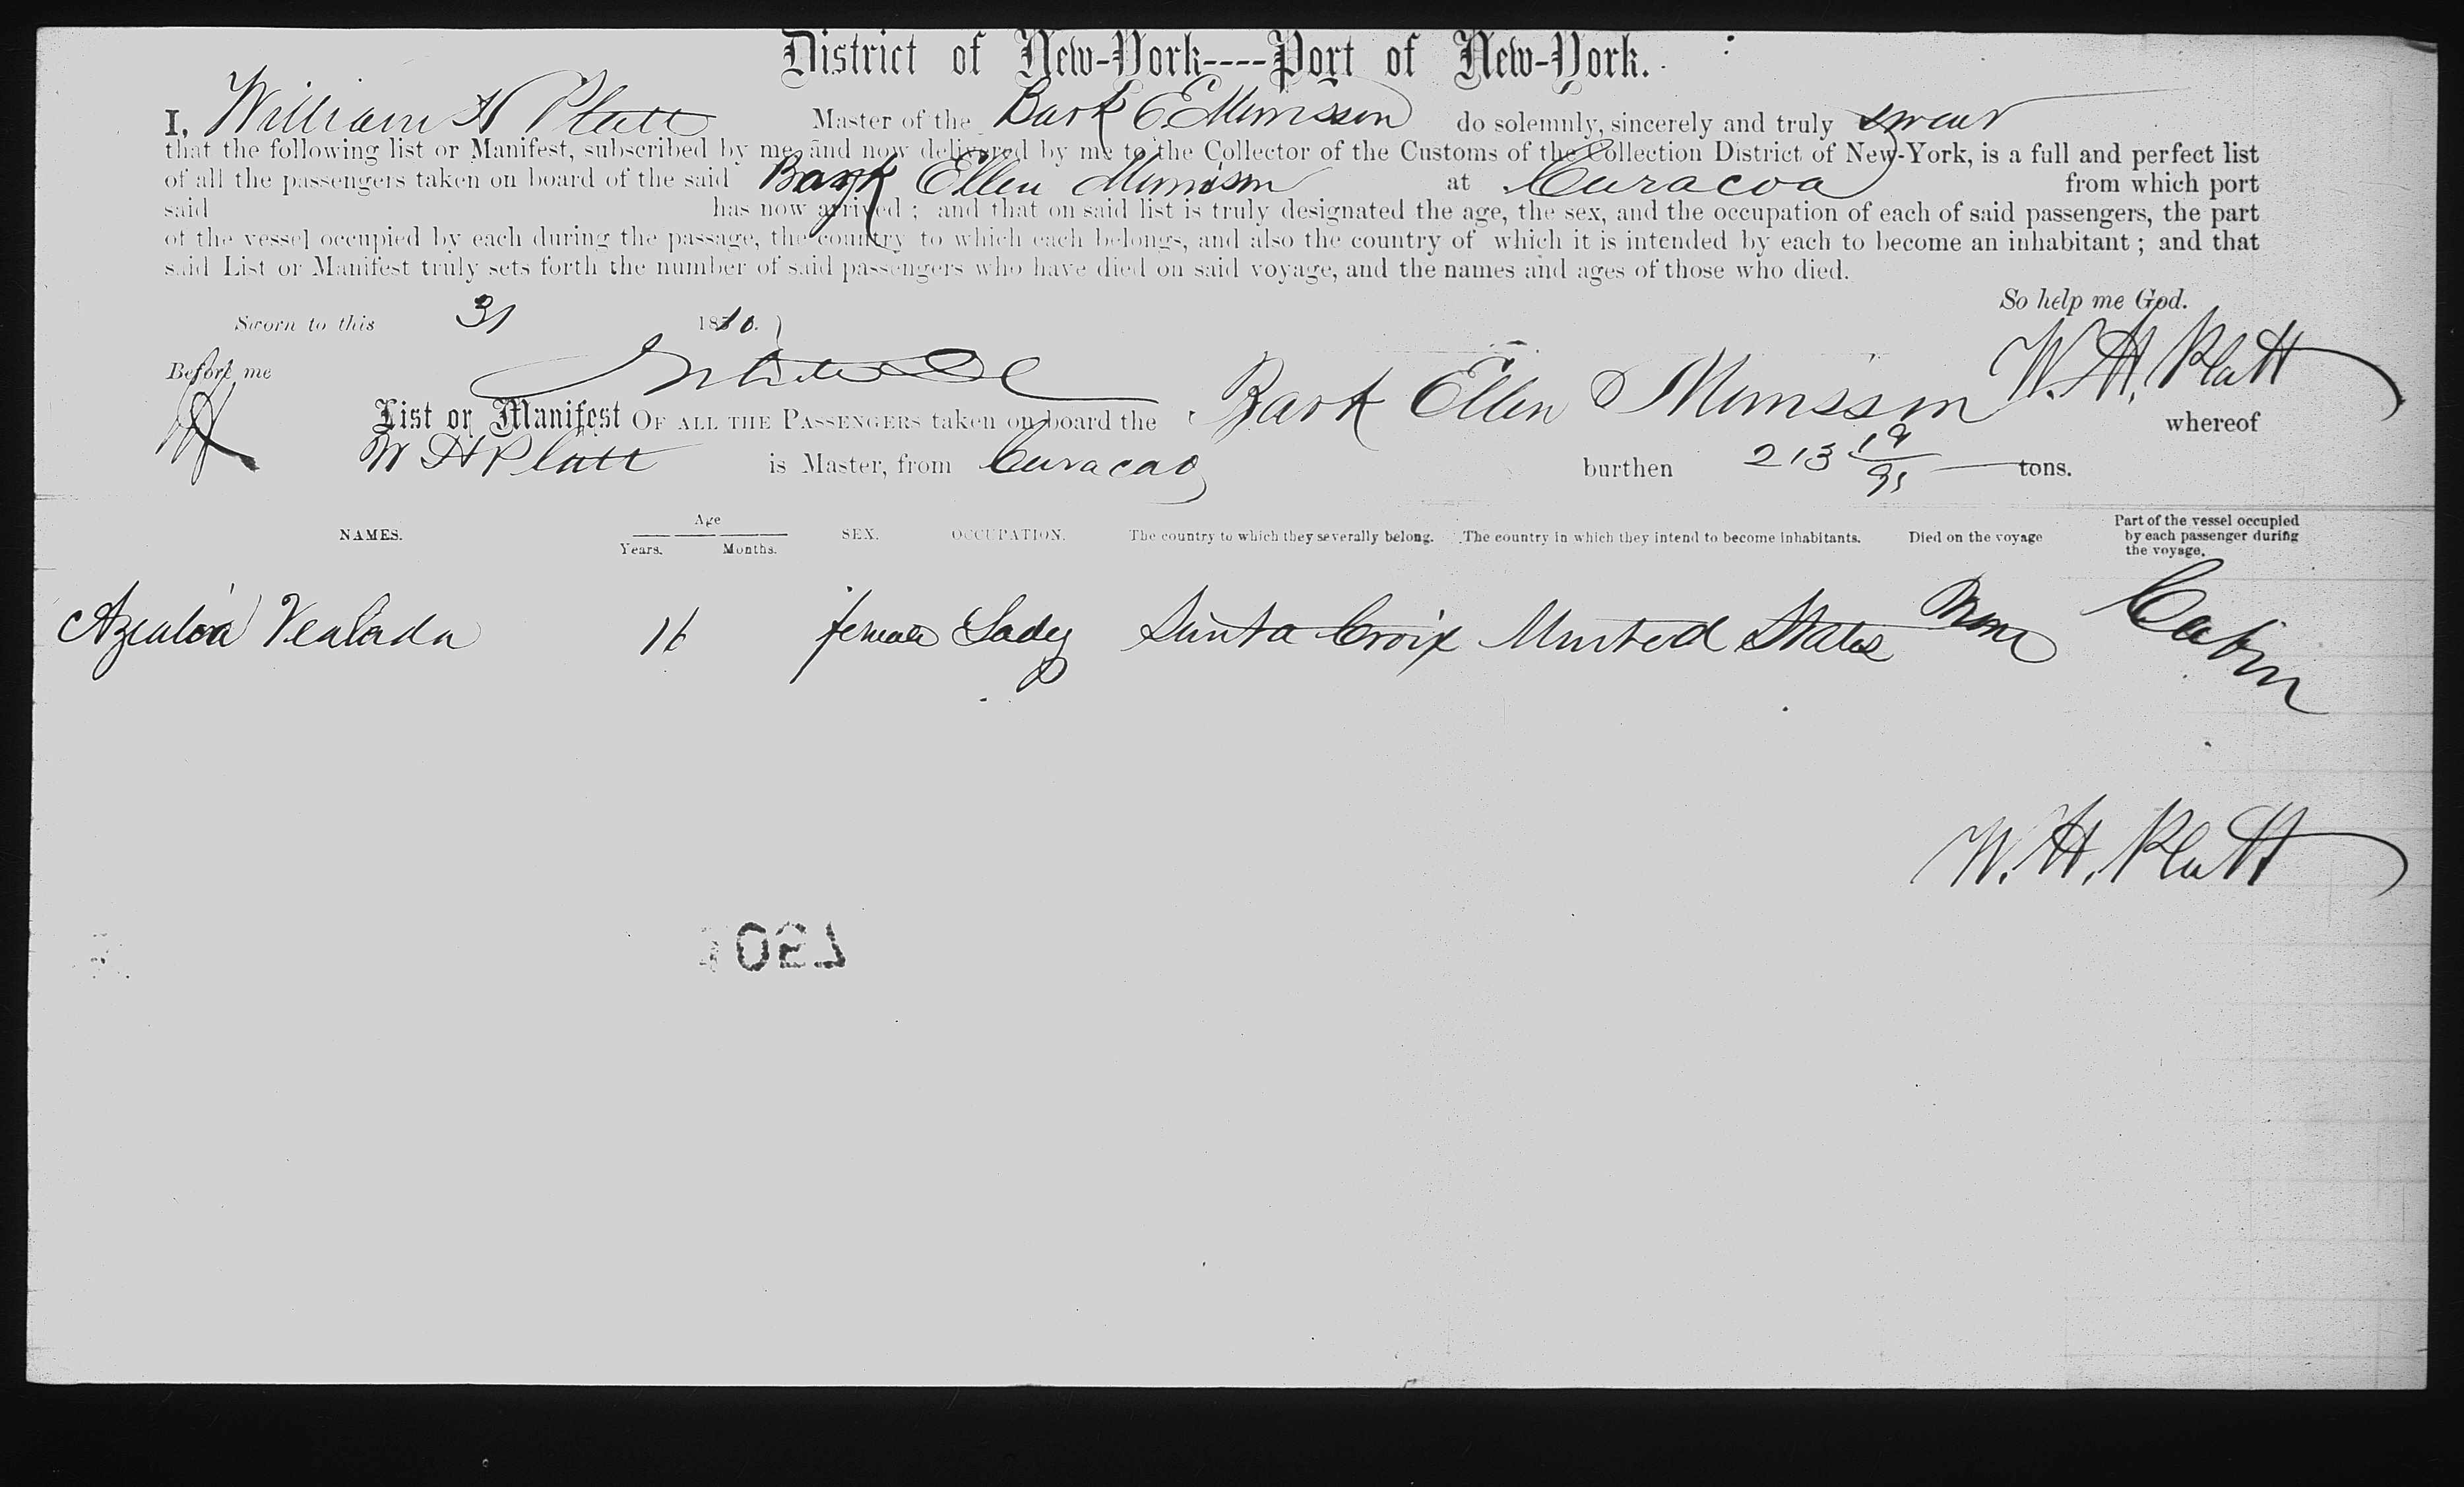 District of New-York----Port of New-York.
I, William H Platt Master of the Bark E Morrison do solemnly, sincerely and truly swear
that the following list or Manifest, subscribed by me and now delivered by me to the Collector of the Customs of the Collection District of New-York, is a full and perfect list
of all the passengers taken on board of the said Bark Ellen Morrison at Curacoa from which port
said has now arrived ; and that on said list is truly designated the age, the sex, and the occupation of each of said passengers, the part
of the vessel occupied by each during the passage, the country to which each belongs, and also the country of which it is intended by each to become an inhabitant ; and that
said List or Manifest truly sets forth the number of said passengers who have died on said voyage, and the names and ages of those who died.
So help me God.
Sworn to this 31 18
W. H. Platt
Before me
List or Manifest OF ALL THE PASSENGERS taken on board the Bark Ellen Morrison whereof
W H Platt is Master, from Curacao burthen 213 19/95 tons.
NAMES. Age Years. Months. SEX. OCCUPATION. The country to which they severally belong. The country in which they intend to become inhabitants. Died on the voyage Part of the vessel occupied by each passenger during the voyage.
female Lady Santa Croix United States None Cabin
W. H. Platt